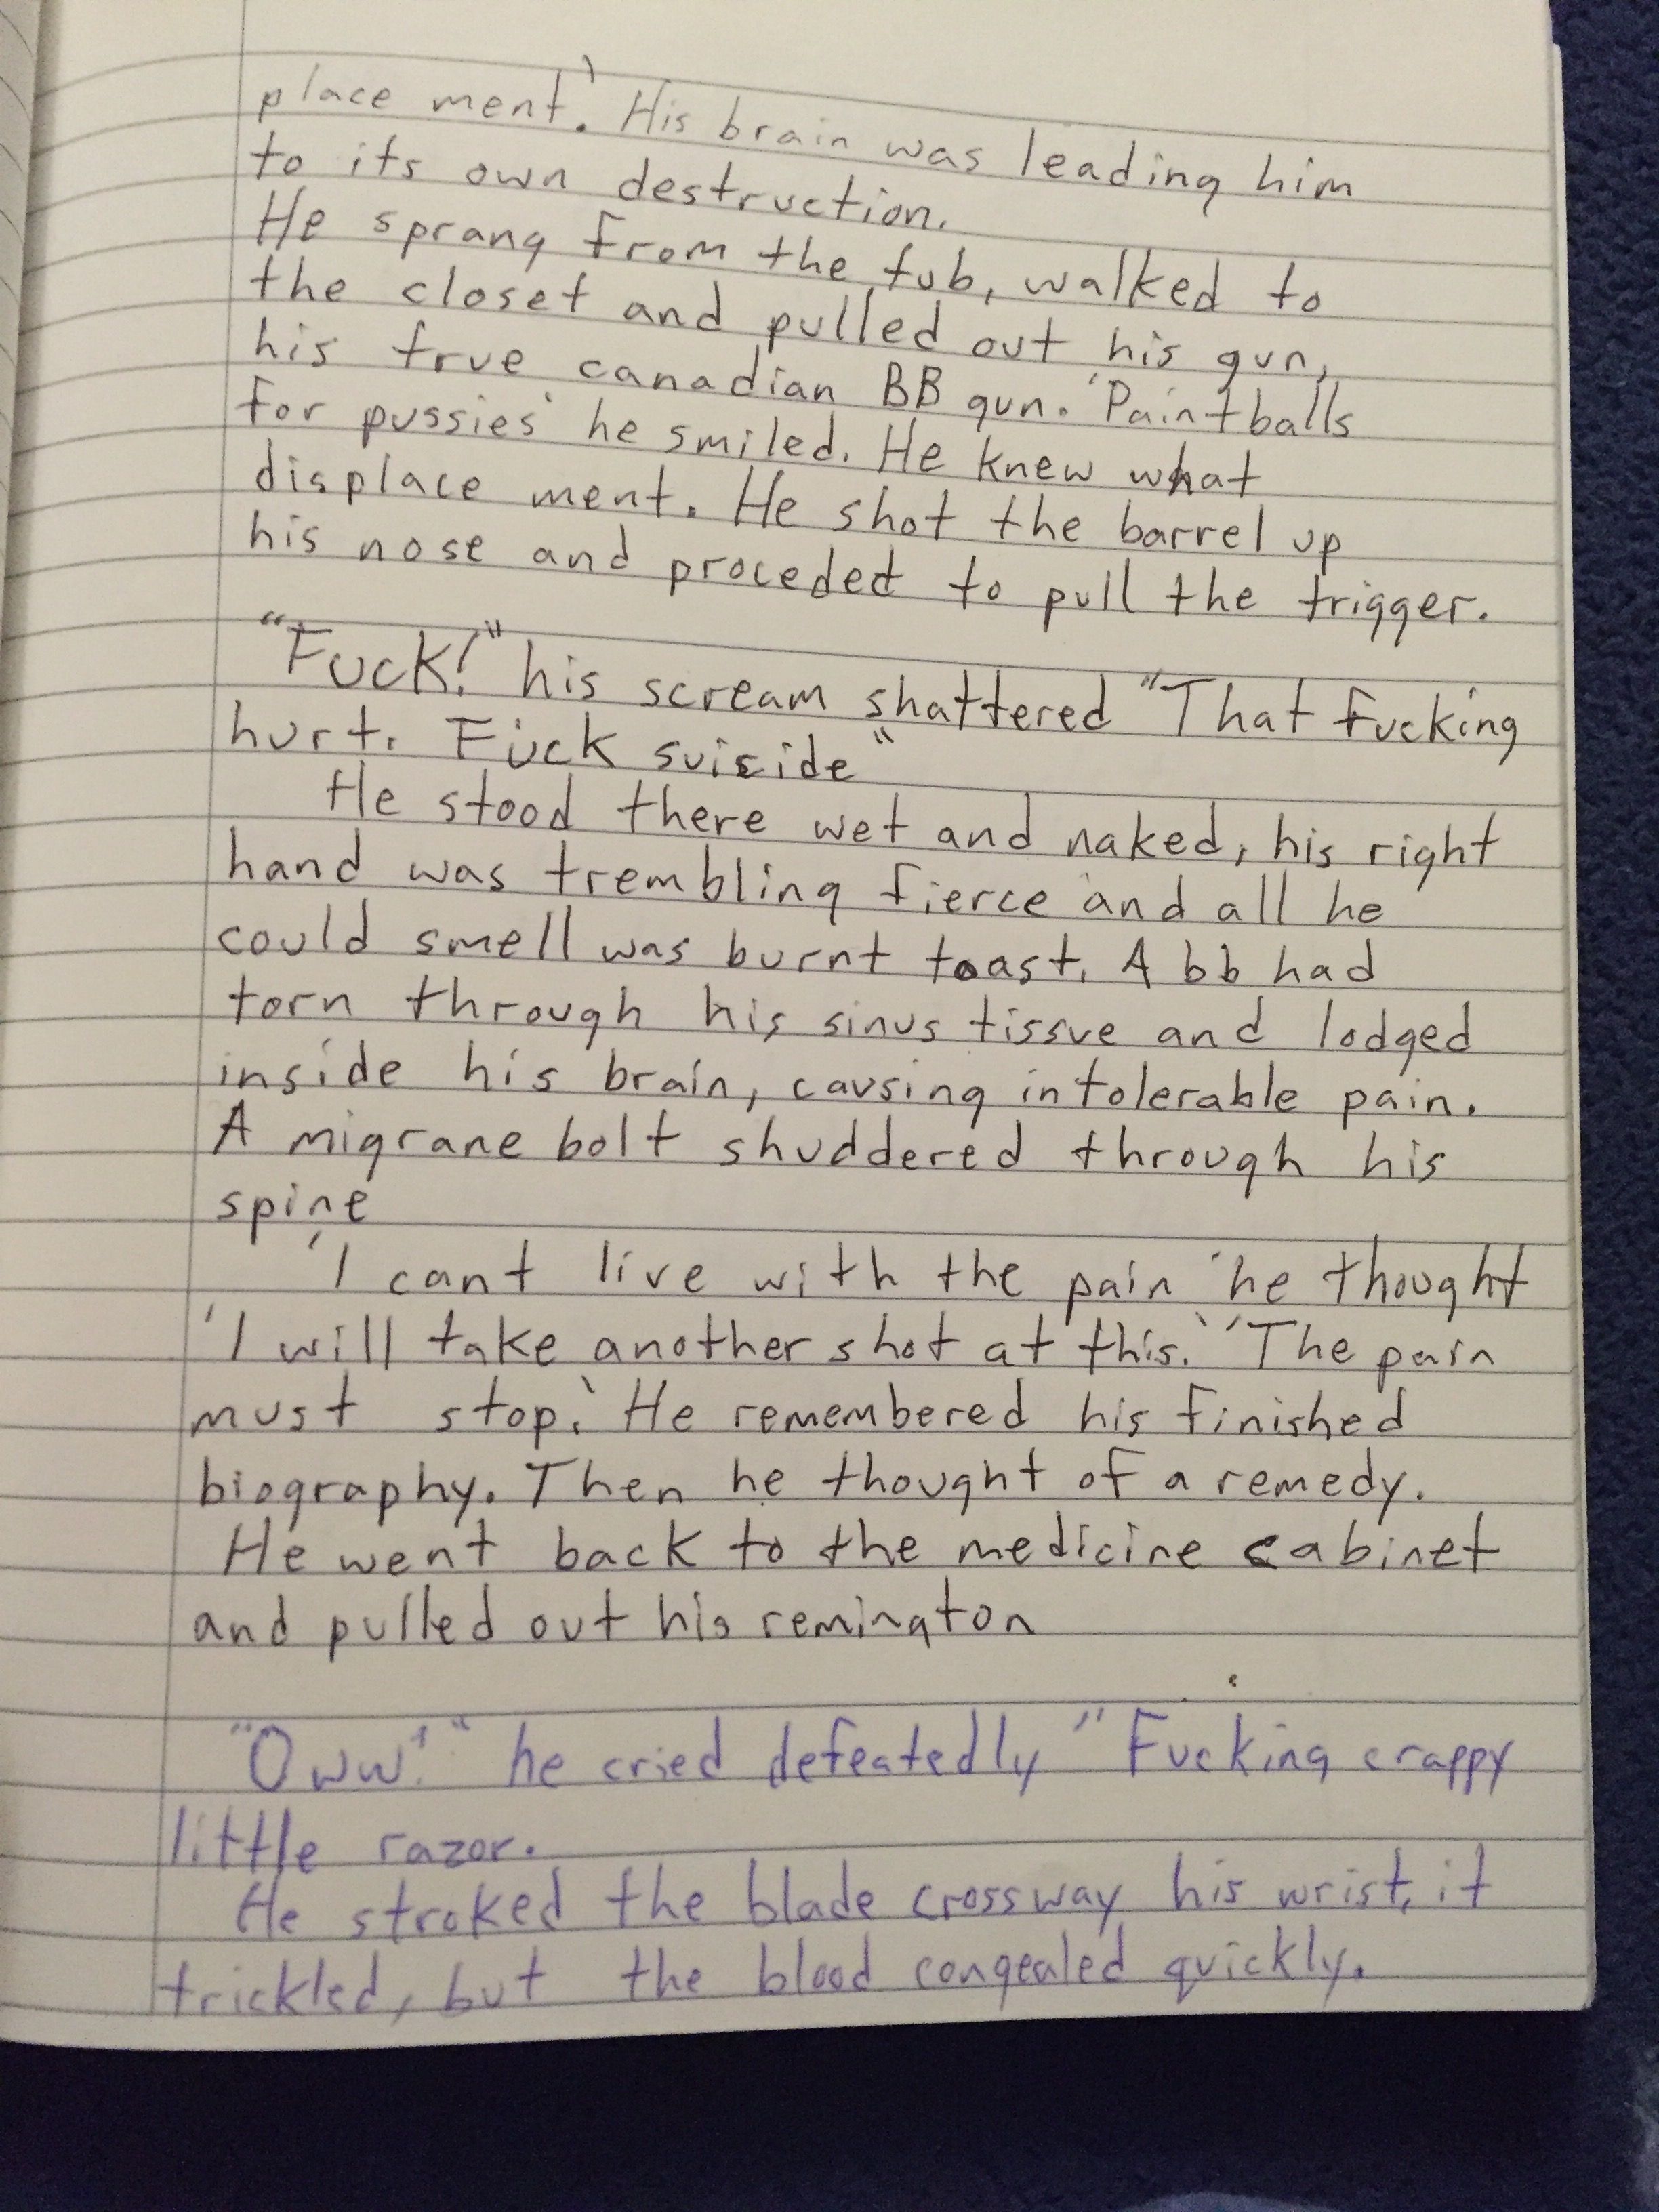 place ment.' His brain was leading him
to its own destruction.
He sprang from the tub, walked to
the closet and pulled out his gun,
his true canadian BB gun. 'Paintballs
for pussies' he smiled. He knew what
displace ment. He shot the barrel up
his nose and proceded to pull the trigger.
"Fuck!" his scream shattered "That fucking
hurt. Fuck suicide"
He stood there wet and naked, his right
hand was trembling fierce and all he
could smell was burnt toast. A bb had
torn through his sinus tissue and lodged
inside his brain, causing intolerable pain.
A migrane bolt shuddered through his
spine
'I cant live with the pain' he thought
'I will take another shot at this.' 'The pain
must stop.' He remembered his finished
biography. Then he thought of a remedy.
He went back to the medicine cabinet
and pulled out his remington
"Oww!" he cried defeatedly "Fucking crappy
little razor.
He stroked the blade crossway his wrist, it
trickled, but the blood congealed quickly.